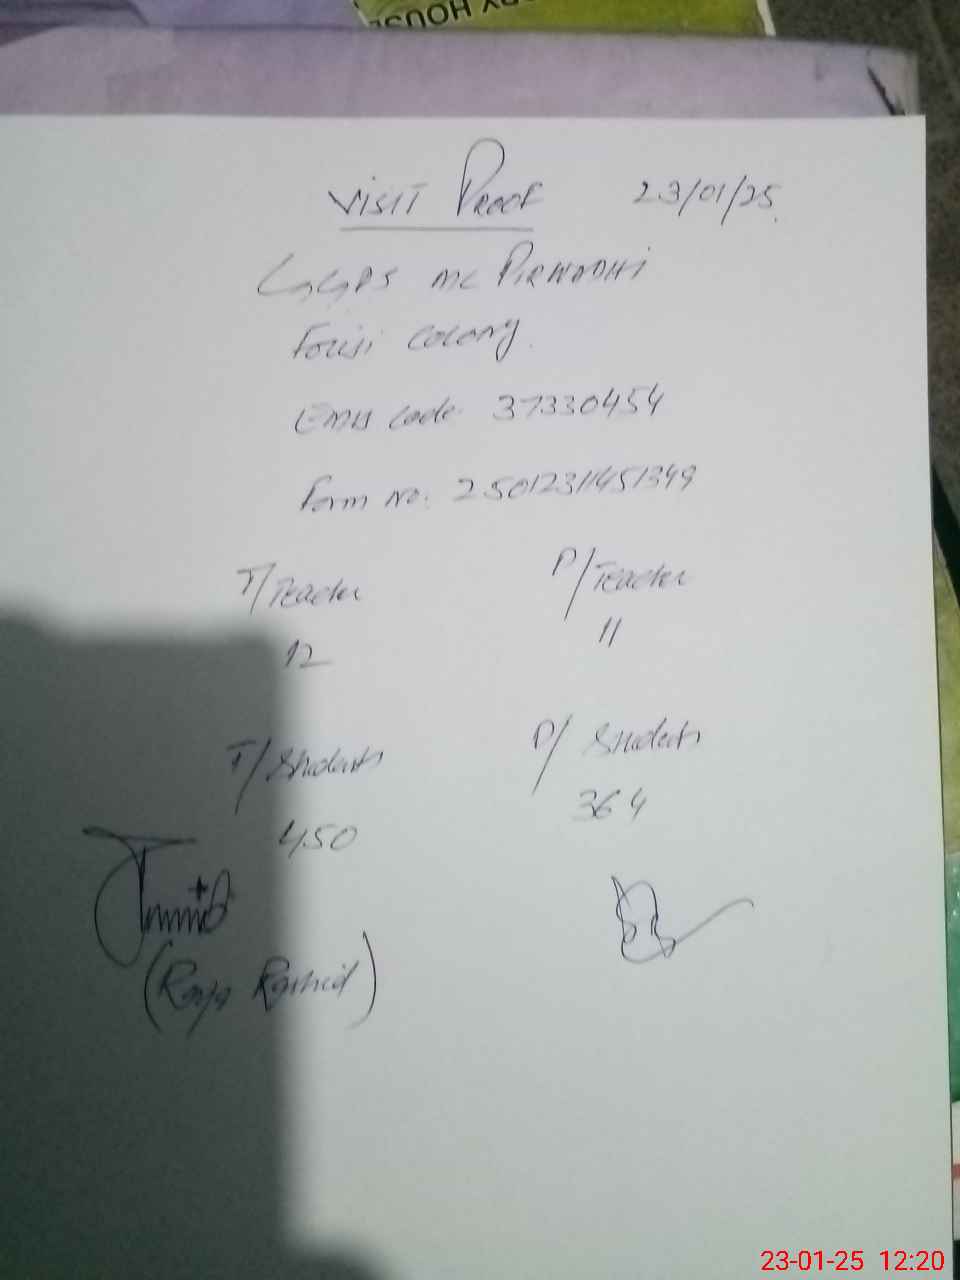 RY HOUS
VISIT PROOF 23/01/25
GGPS MC PIRWADHI
Fouji Colony.
EMIS Code: 37330454
Form No: 25012311451349
T/Teacher P/Teacher
12 11
T/Students P/Students
450 364
(Raja Rashid)
23-01-25 12:20